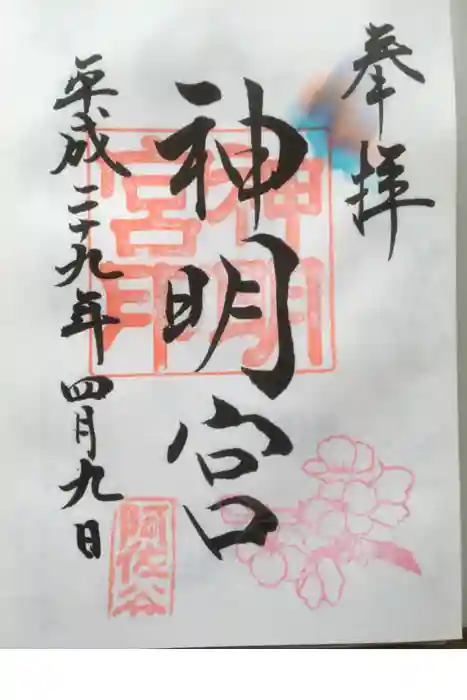 奉拝
神明宮
神明
宮印
平成二十九年四月九日
阿佐谷